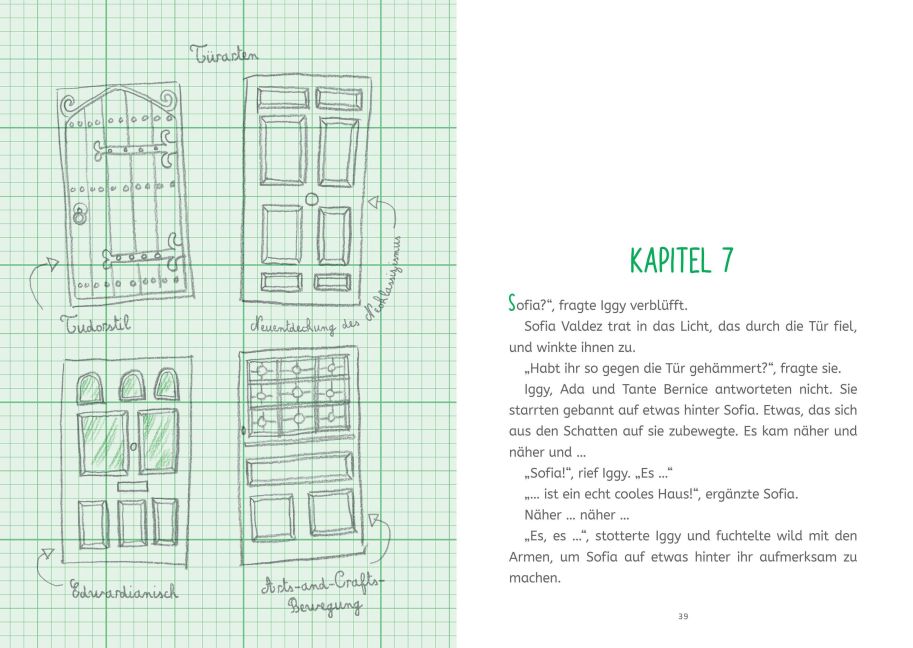 Türarten
Tudorstil
Neuentdeckung des Neoklassizismus
Edwardianisch
Arts-and-Crafts-
Bewegung
KAPITEL 7
Sofia?“, fragte Iggy verblüfft.
Sofia Valdez trat in das Licht, das durch die Tür fiel,
und winkte ihnen zu.
„Habt ihr so gegen die Tür gehämmert?“, fragte sie.
Iggy, Ada und Tante Bernice antworteten nicht. Sie
starrten gebannt auf etwas hinter Sofia. Etwas, das sich
aus den Schatten auf sie zubewegte. Es kam näher und
näher und …
„Sofia!“, rief Iggy. „Es …“
„… ist ein echt cooles Haus!“, ergänzte Sofia.
Näher … näher …
„Es, es …“, stotterte Iggy und fuchtelte wild mit den
Armen, um Sofia auf etwas hinter ihr aufmerksam zu
machen.
39